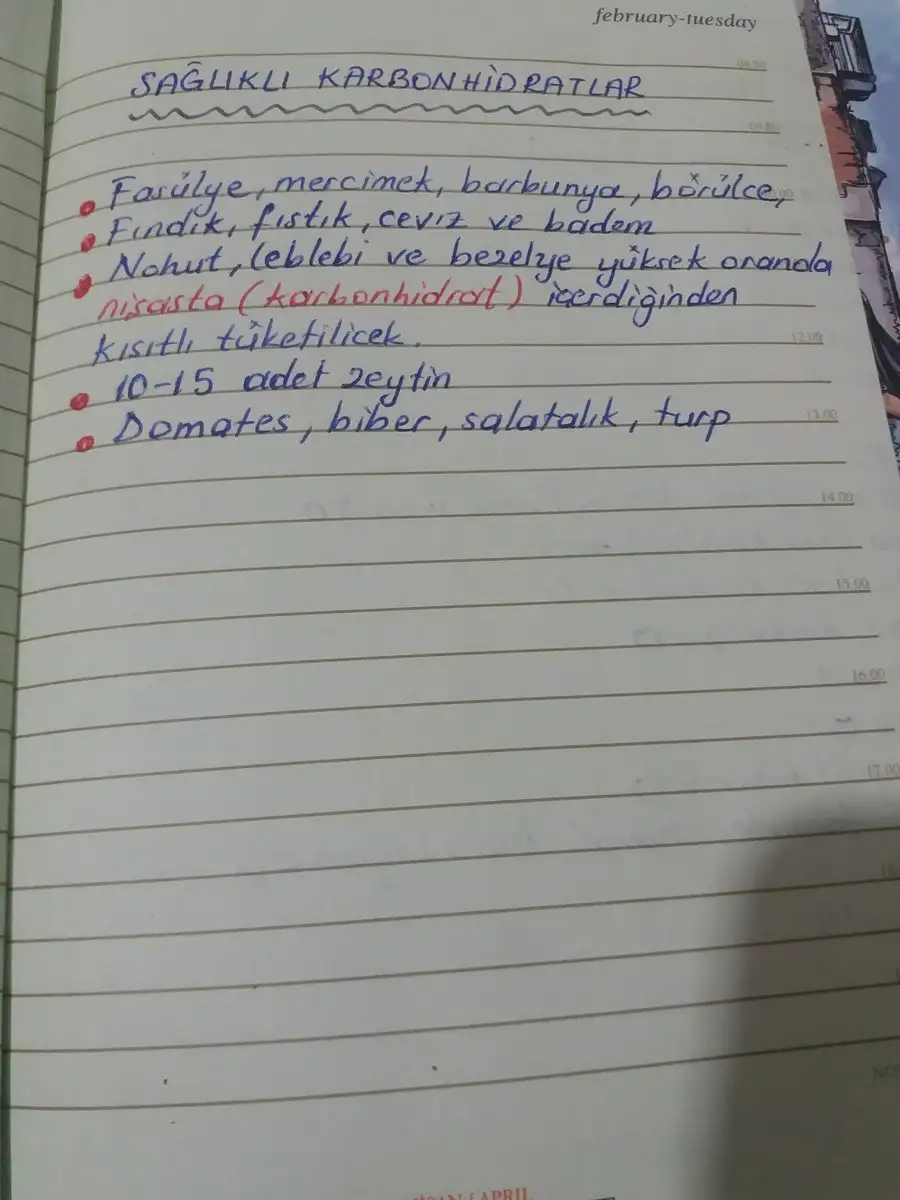 february-tuesday
SAĞLIKLI KARBONHİDRATLAR
Fasülye, mercimek, barbunya, börülce,
Fındık, fıstık, ceviz ve badem
Nohut, leblebi ve bezelye yüksek oranda
nişasta (karbonhidrat) içerdiğinden
kısıtlı tüketilicek.
12.00
10-15 adet zeytin
Domates, biber, salatalık, turp
13.00
14.00
15.00
16.00
17.00
APRIL